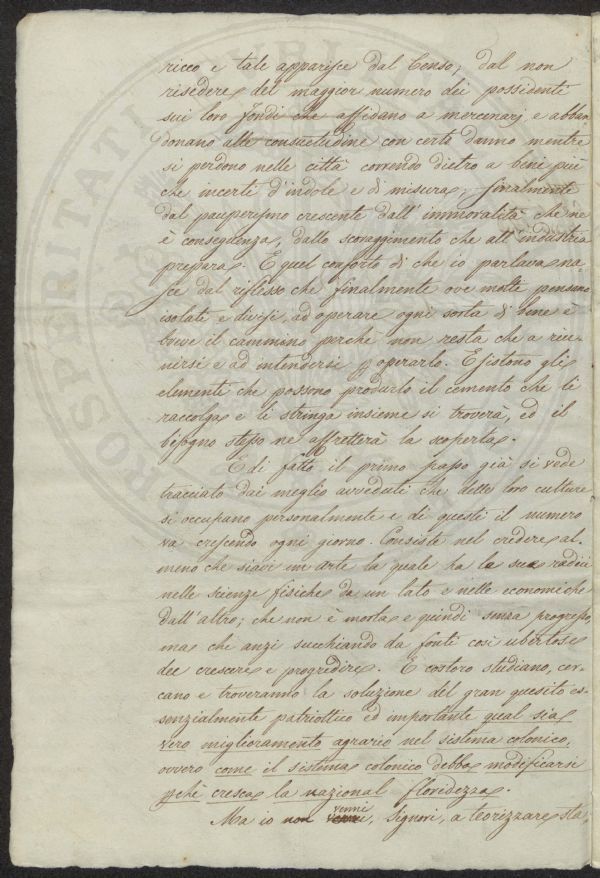 ricco e tale apparisce dal Censo; dal non
risedere del maggior numero dei possidenti
sui loro fondi che affidano a mercenarj, e abban
donano alle consuetudine con certo danno mentre
si perdono nelle città correndo dietro a beni più
che incerti d'indole e di misura; finalmente
dal pauperismo crescente dall'immoralità che ne
è conseguenza, dallo scoraggimento che all'industria
prepara. E quel conforto di che io parlava na
sce dal riflesso che finalmente ove molti pensano
isolati e divisi, ad operare ogni sorta di bene è
breve il cammino perchè non resta che a riu=
nirsi e ad intendersi p operarlo. Esistono gli
elementi che possono produrlo il cemento che li
raccolga e li stringa insieme si troverà, ed il
bisogno stesso ne affretterà la scoperta.
E di fatto il primo passo già si vede
tracciato dai meglio avveduti che delle loro culture
si occupano personalmente e di questi il numero
va crescendo ogni giorno. Consiste nel credere al=
meno che siavi un'arte la quale ha le sue radici
nelle scienze fisiche da un lato e nelle economiche
dall'altro; che non è morta e quindi senza progresso,
ma che anzi succhiando da fonti così ubertose
dee crescere e progredire. E costoro studiano, cer=
cano e troveranno la soluzione del gran quesito es=
senzialmente patriottico ed importante qual sia
vero miglioramento agrario nel sistema colonico,
ovvero come il sistema colonico debba modificarsi
pchè cresca la nazional floridezza.
Ma io non venni, Signori, a teorizzare sta=
PROSPERITATI